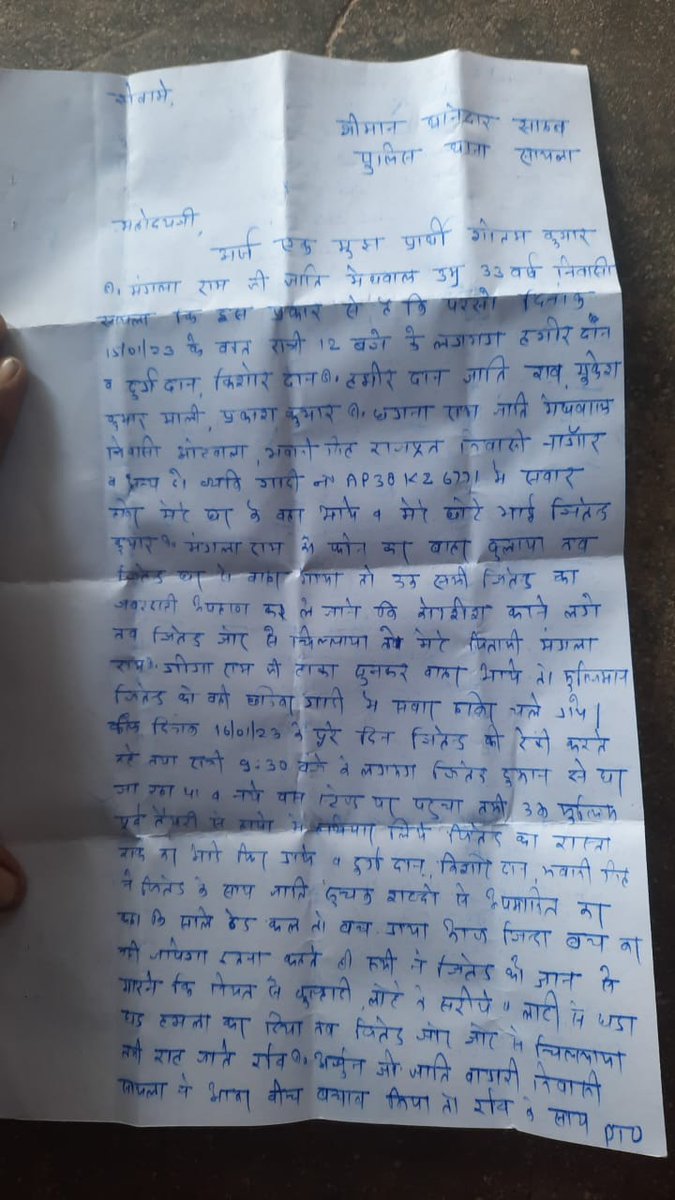 सेवामे,
श्रीमान थानेदार साहब
पुलिस थाना सायला
महोदयजी,
अर्ज एक मुझ प्रार्थी गोतम कुमार
S/o मंगला राम जी जाति मेघवाल उम्र 33 वर्ष निवासी
सायला कि इस प्रकार से है कि परसो दिनांक
15/01/23 के वक्त रात्री 12 बजे के लगभग हमीर दान
व दुर्ग दान, किशोर दान S/o हमीर दान जाति राव, मुकेश
कुमार माली, प्रकाश कुमार S/o छगना राम जाति मेघवाल
निवासी ओटवाला, भवानी सिंह राजपूत निवासी
व अन्य दो व्यक्ति गाडी नं AP38KZ 6771 मे सवार
होकर मेरे घर के बाहर आये व मेरे छोटे भाई जितेन्द्र
कुमार S/o मंगला राम को फोन कर बाहर बुलाया तब
जितेन्द्र घर से बाहर आया तो उक्त सभी जितेन्द्र का
जबरदस्ती अपहरण कर ले जाने कि कोशीश करने लगे
तब जितेन्द्र जोर से चिल्लाया तो मेरे पिताजी मंगला
राम S/o जीगा राम जी हाका सुनकर बाहर आये तो मुल्जिमान
जितेन्द्र को वही छोडकर गाडी मे सवार होकर चले गये।
दिनांक 16/01/23 को पुरे दिन जितेन्द्र की रेकी करते
रहे तथा रात्री 9:30 बजे के लगभग जितेन्द्र दुकान से घर
जा रहा था व नये बस स्टेण्ड पर पहुचा तभी उक्त मुल्जिमान
पूर्व तैयारी से हाथो मे हथियार लिये जितेन्द्र का रास्ता
रोक कर आगे फिर आये व दुर्ग दान, किशोर दान, भवानी सिंह
ने जितेन्द्र के साथ जाति सुचक शब्दो से अपमानित कर
कहा कि साले ढेड कल तो बच गया आज जिन्दा बच कर
नही जायेगा इतना कहते ही सभी ने जितेन्द्र को जान से
मारने कि नियत से कुल्हाडी, लोहे के सरीये, लाठी से
हमला कर दिया तब जितेन्द्र जोर जोर से चिल्लाया
तभी राह जाते रवि S/o अर्जुन जी जाति वागरी निवासी
सायला ने आकर बीच बचाव किया तो रवि के साथ
PTO